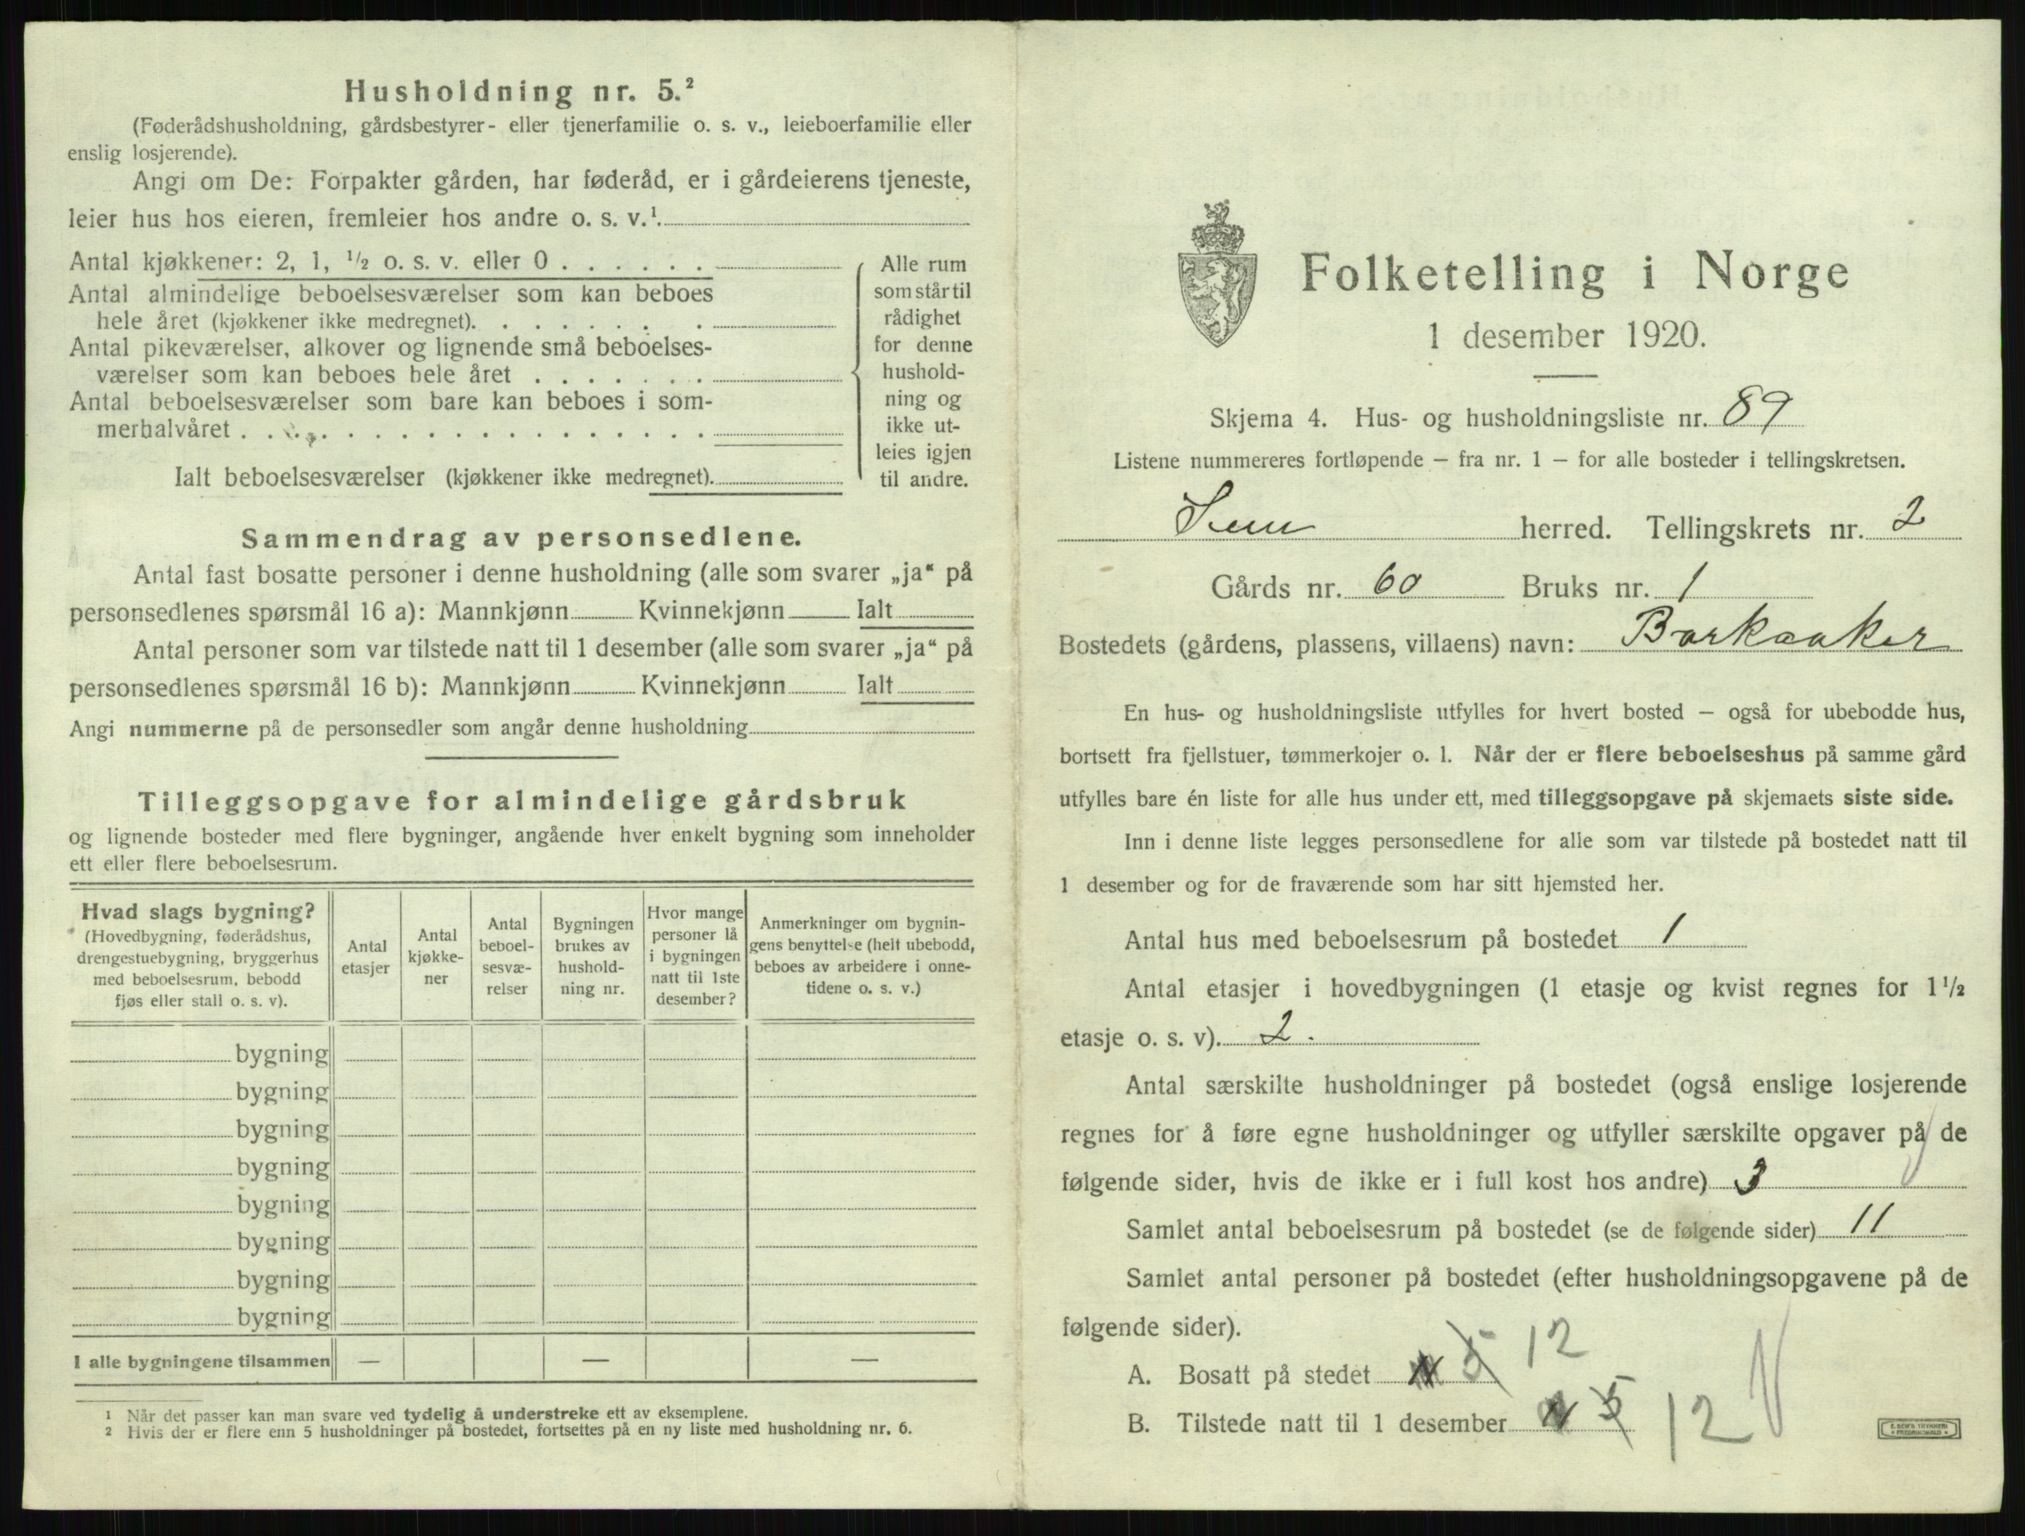 Husholdning nr. 5.²
(Føderådshusholdning, gårdsbestyrer- eller tjenerfamilie o. s. v., leieboerfamilie eller
enslig losjerende).
Angi om De: Forpakter gården, har føderåd, er i gårdeierens tjeneste,
leier hus hos eieren, fremleier hos andre o. s. v.¹.
Antal kjøkkener: 2, 1, ½ o. s. v. eller 0 . . . . . .
Antal almindelige beboelsesværelser som kan beboes
hele året (kjøkkener ikke medregnet). . . . . . . .
Antal pikeværelser, alkover og lignende små beboelses-
værelser som kan beboes hele året . . . . . . .
Antal beboelsesværelser som bare kan beboes i som-
merhalvåret . . . . . . . . . . . . . . . . . .
Ialt beboelsesværelser (kjøkkener ikke medregnet).
Alle rum
som står til
rådighet
for denne
hushold-
ning og
ikke ut-
leies igjen
til andre.
Sammendrag av personsedlene.
Antal fast bosatte personer i denne husholdning (alle som svarer „ja“ på
personsedlenes spørsmål 16 a): Mannkjønn Kvinnekjønn Ialt
Antal personer som var tilstede natt til 1 desember (alle som svarer „ja“ på
personsedlenes spørsmål 16 b): Mannkjønn Kvinnekjønn Ialt
Angi nummerne på de personsedler som angår denne husholdning
Tilleggsopgave for almindelige gårdsbruk
og lignende bosteder med flere bygninger, angående hver enkelt bygning som inneholder
ett eller flere beboelsesrum.
Hvad slags bygning?
(Hovedbygning, føderådshus,
drengestuebygning, bryggerhus
med beboelsesrum, bebodd
fjøs eller stall o. s. v).
Antal
etasjer
Antal
kjøkke-
ner
Antal
beboel-
sesvæ-
relser
Bygningen
brukes av
hushold-
ning nr.
Hvor mange
personer lå
i bygningen
natt til 1ste
desember?
Anmerkninger om bygnin-
gens benyttelse (helt ubebodd,
beboes av arbeidere i onne-
tidene o. s. v.)
bygning
bygning
bygning
bygning
bygning
bygning
bygning
bygning
I alle bygningene tilsammen — — —
¹ Når det passer kan man svare ved tydelig å understreke ett av eksemplene.
² Hvis der er flere enn 5 husholdninger på bostedet, fortsettes på en ny liste med husholdning nr. 6.
Folketelling i Norge
1 desember 1920.
Skjema 4. Hus- og husholdningsliste nr. 89
Listene nummereres fortløpende — fra nr. 1 — for alle bosteder i tellingskretsen.
Sem herred. Tellingskrets nr. 2
Gårds nr. 60 Bruks nr. 1
Bostedets (gårdens, plassens, villaens) navn: Barkaaker
En hus- og husholdningsliste utfylles for hvert bosted — også for ubebodde hus,
bortsett fra fjellstuer, tømmerkojer o. l. Når der er flere beboelseshus på samme gård
utfylles bare én liste for alle hus under ett, med tilleggsopgave på skjemaets siste side.
Inn i denne liste legges personsedlene for alle som var tilstede på bostedet natt til
1 desember og for de fraværende som har sitt hjemsted her.
Antal hus med beboelsesrum på bostedet 1
Antal etasjer i hovedbygningen (1 etasje og kvist regnes for 1½
etasje o. s. v). 2.
Antal særskilte husholdninger på bostedet (også enslige losjerende
regnes for å føre egne husholdninger og utfyller særskilte opgaver på de
følgende sider, hvis de ikke er i full kost hos andre) 3
Samlet antal beboelsesrum på bostedet (se de følgende sider) 11
Samlet antal personer på bostedet (efter husholdningsopgavene på de
følgende sider).
A. Bosatt på stedet 5 12
B. Tilstede natt til 1 desember 5 12